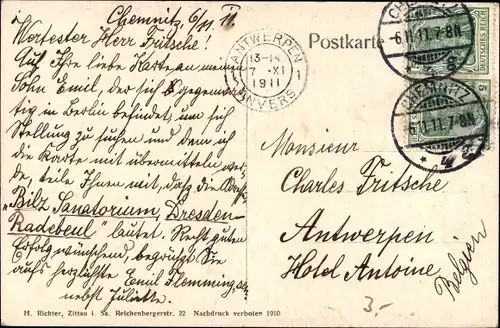 Chemnitz, 6/11 11.
Wertester Herr Fritsche!
Auf Ihre liebe Karte an meinen
Sohn Emil, der sich gegenwär-
tig in Berlin befindet, um sich
Stellung zu suchen und dem ich
die Karte mit übermitteln wer-
de, teile Ihnen mit, daß die
„Bilz Sanatorium, Dresden-
Radebeul" lautet. Recht guten
Erfolg wünschend, begrüßt Sie
aufs herzlichste Emil Flemming,
nebst Juliette.
H. Richter, Zittau i. Sa. Reichenbergerstr. 22 Nachdruck verboten 1910
ANTWERPEN
13-14
7-XI
1911
ANVERS
1 1
Postkarte
CHEMNITZ
6.11.11.7-8N.
DEUTSCHES REICH
5
CHEMNITZ
6.11.11.7-8N.
Monsieur
Charles Fritsche
Antwerpen
Hotel Antoine
Belgien
3.-